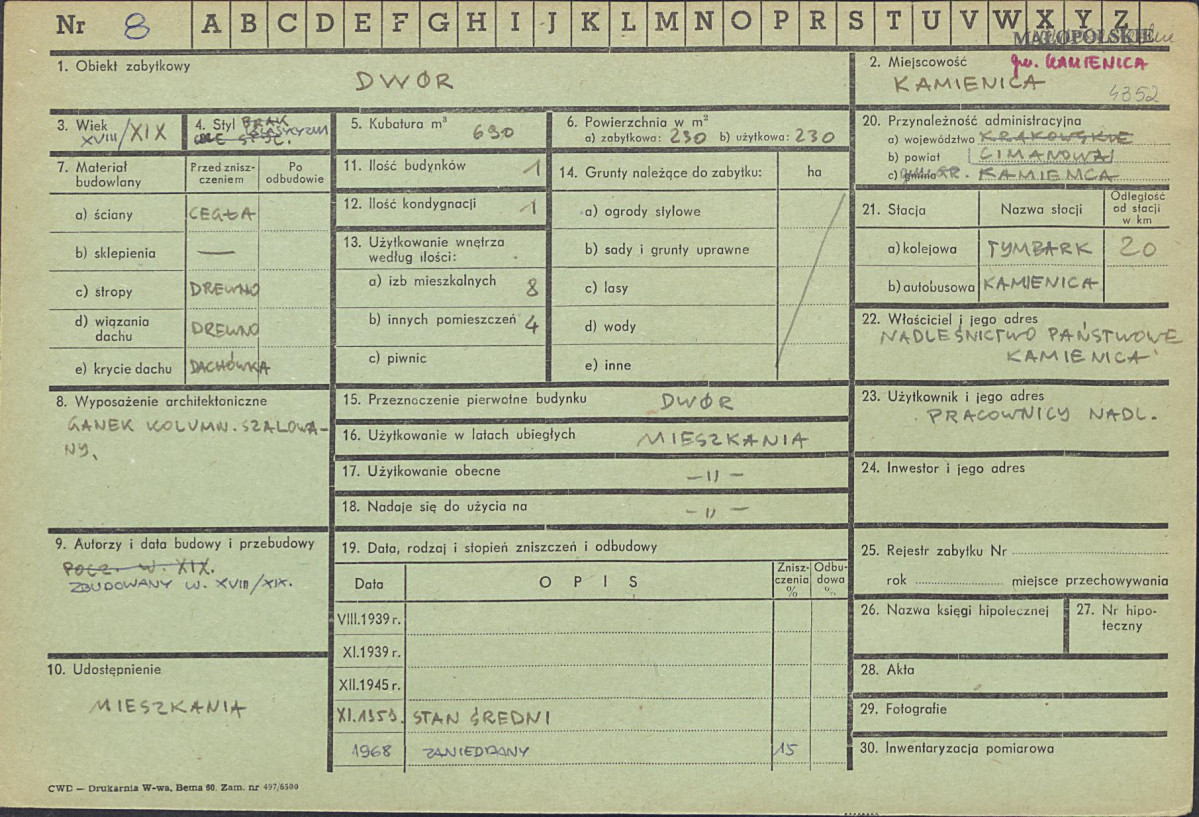 Nr 8 A B C D E F G H I J K L M N O P R S T U V W X Y Z
MAŁOPOLSKIE
1. Obiekt zabytkowy
DWÓR
2. Miejscowość gm. KAMIENICA
KAMIENICA
4352
3. Wiek
XVIII/XIX
4. Styl BRAK
KLASYCYZM
5. Kubatura m³ 690
6. Powierzchnia w m²
a) zabytkowa: 230 b) użytkowa: 230
20. Przynależność administracyjna
a) województwo KRAKOWSKIE
b) powiat LIMANOWA
c) gmina GR. KAMIENICA
7. Materiał budowlany
Przed zniszczeniem
Po odbudowie
a) ściany CEGŁA
b) sklepienia —
c) stropy DREWNO
d) wiązania dachu DREWNO
e) krycie dachu DACHÓWKA
11. Ilość budynków 1
12. Ilość kondygnacji 1
13. Użytkowanie wnętrza
według ilości:
a) izb mieszkalnych 8
b) innych pomieszczeń 4
c) piwnic
14. Grunty należące do zabytku: ha
a) ogrody stylowe
b) sady i grunty uprawne
c) lasy
d) wody
e) inne
21. Stacja Nazwa stacji Odległość od stacji w km
a) kolejowa TYMBARK 20
b) autobusowa KAMIENICA
22. Właściciel i jego adres
NADLEŚNICTWO PAŃSTWOWE
KAMIENICA
8. Wyposażenie architektoniczne
GANEK KOLUMN. SZALOWA-
NY.
15. Przeznaczenie pierwotne budynku DWÓR
16. Użytkowanie w latach ubiegłych MIESZKANIA
17. Użytkowanie obecne —„—
18. Nadaje się do użycia na —„—
23. Użytkownik i jego adres
PRACOWNICY NADL.
24. Inwestor i jego adres
9. Autorzy i data budowy i przebudowy
POCZ. W. XIX.
ZBUDOWANY W. XVIII/XIX.
10. Udostępnienie
MIESZKANIA
19. Data, rodzaj i stopień zniszczeń i odbudowy
Data OPIS Zniszczenia % Odbudowa %
VIII.1939 r.
XI.1939 r.
XII.1945 r.
XI.1959. STAN ŚREDNI
1968 ZANIEDBANY 15
25. Rejestr zabytku Nr
rok miejsce przechowywania
26. Nazwa księgi hipotecznej
27. Nr hipoteczny
28. Akta
29. Fotografie
30. Inwentaryzacja pomiarowa
CWD — Drukarnia W-wa, Bema 60. Zam. nr 497/6500